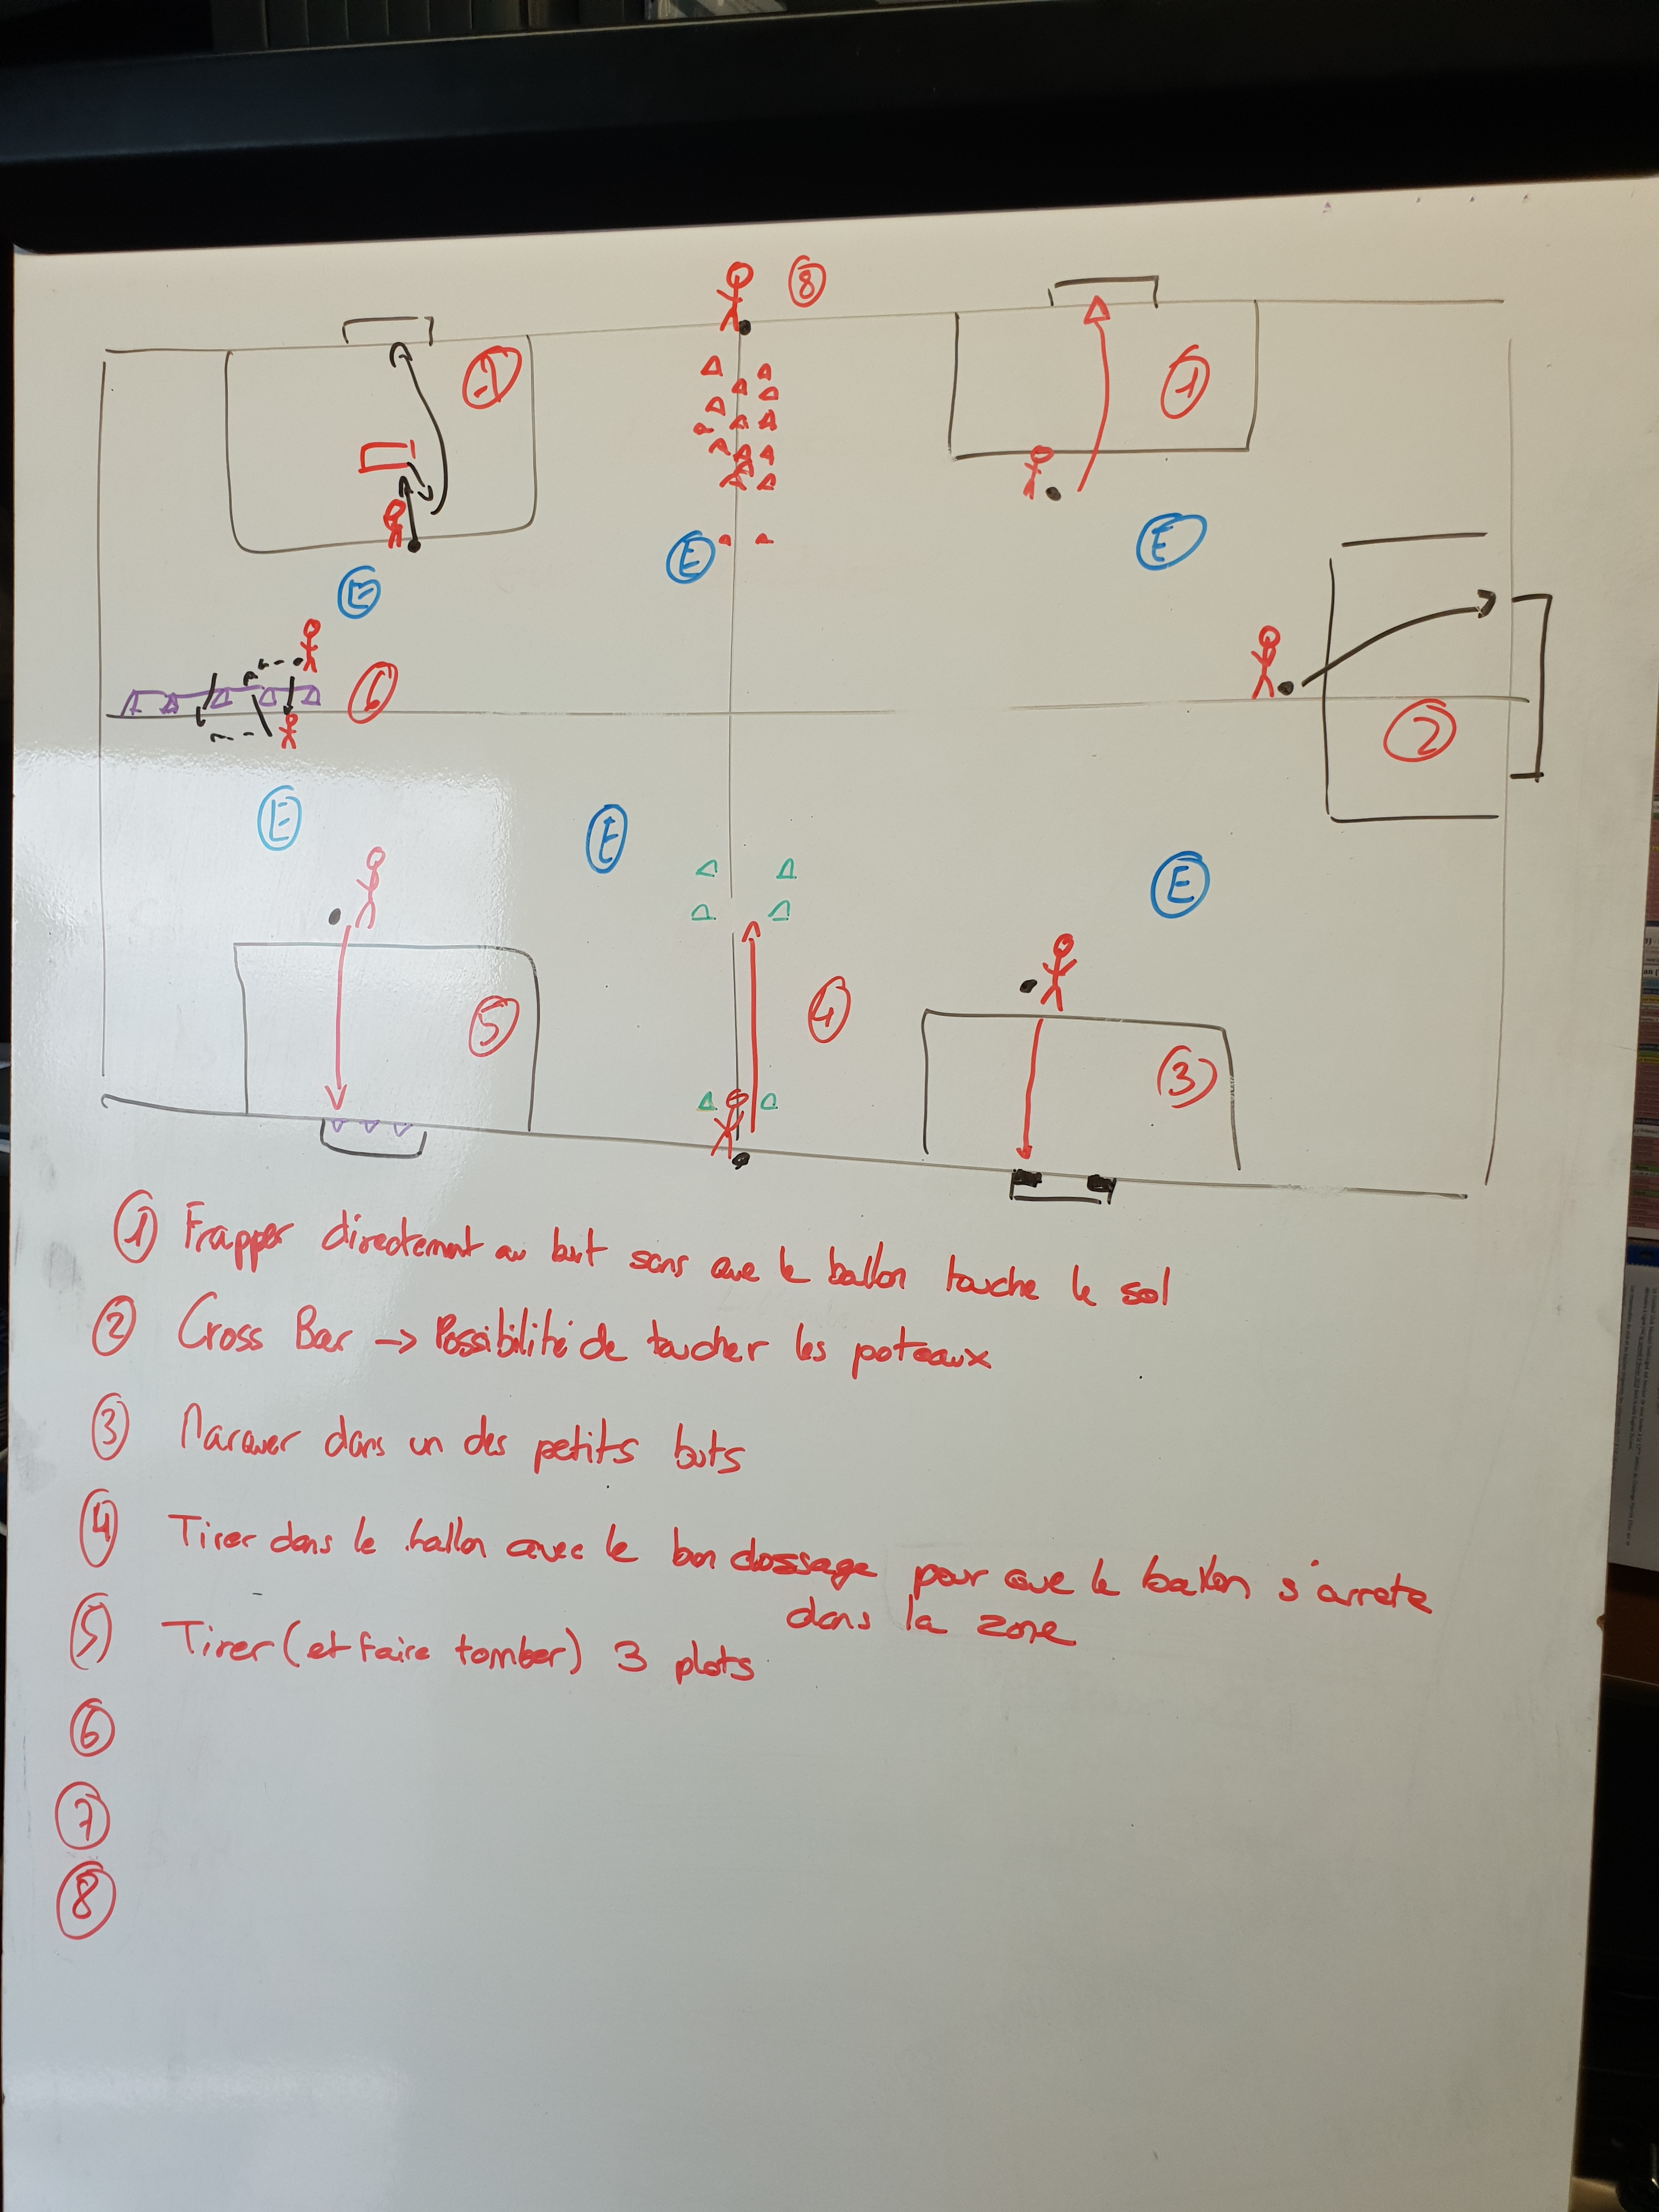 8
7
1
E
E
E
6
2
E
E
E
5
4
3
1 Frapper directement au but sans que le ballon touche le sol
2 Cross Bar -> Possibilité de toucher les poteaux
3 Marquer dans un des petits buts
4 Tirer dans le ballon avec le bon dossage pour que le ballon s'arrete
dans la zone
5 Tirer (et faire tomber) 3 plots
6
7
8